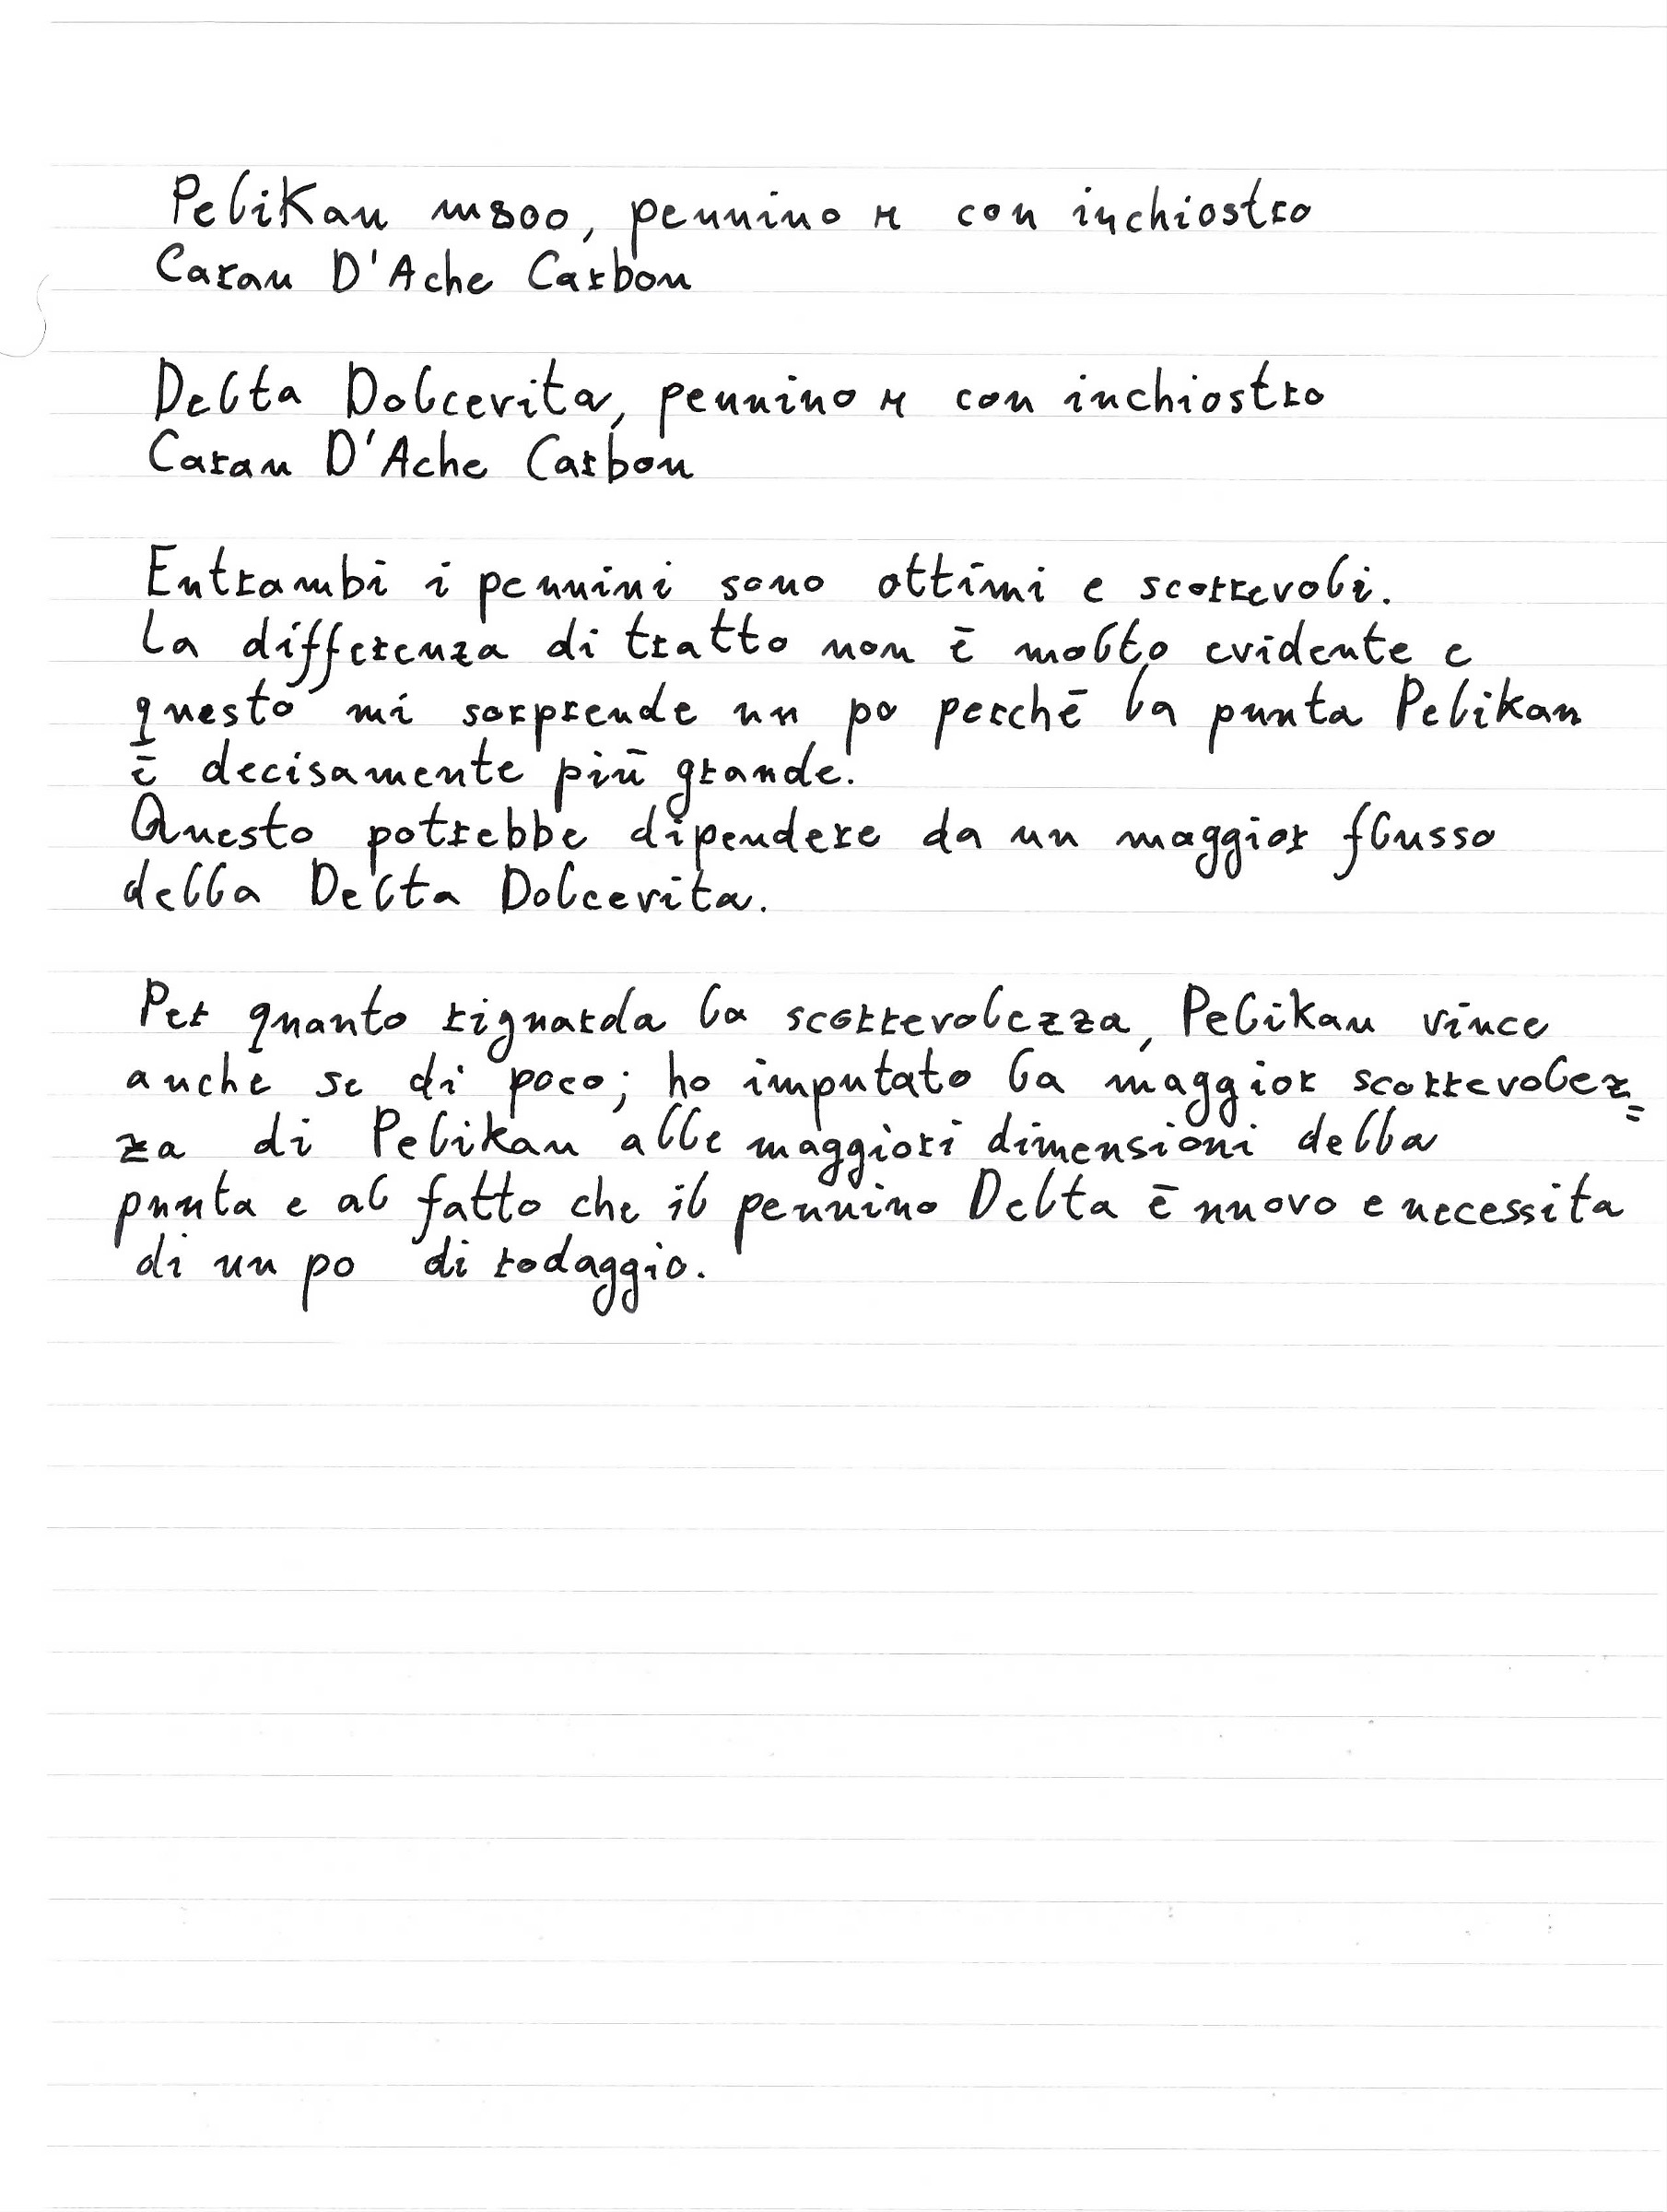 Pelikan m800, pennino M con inchiostro
Caran D'Ache Carbon
Delta Dolcevita, pennino M con inchiostro
Caran D'Ache Carbon
Entrambi i pennini sono ottimi e scorrevoli.
la differenza di tratto non è molto evidente e
questo mi sorprende un po perchē la punta Pelikan
ē decisamente piū grande.
Questo potrebbe dipendere da un maggior flusso
della Delta Dolcevita.
Per quanto riguarda la scorrevolezza, Pelikan vince
anche se di poco; ho imputato la maggior scorrevolez=
za di Pelikan alle maggiori dimensioni della
punta e al fatto che il pennino Delta ē nuovo e necessita
di un po di rodaggio.